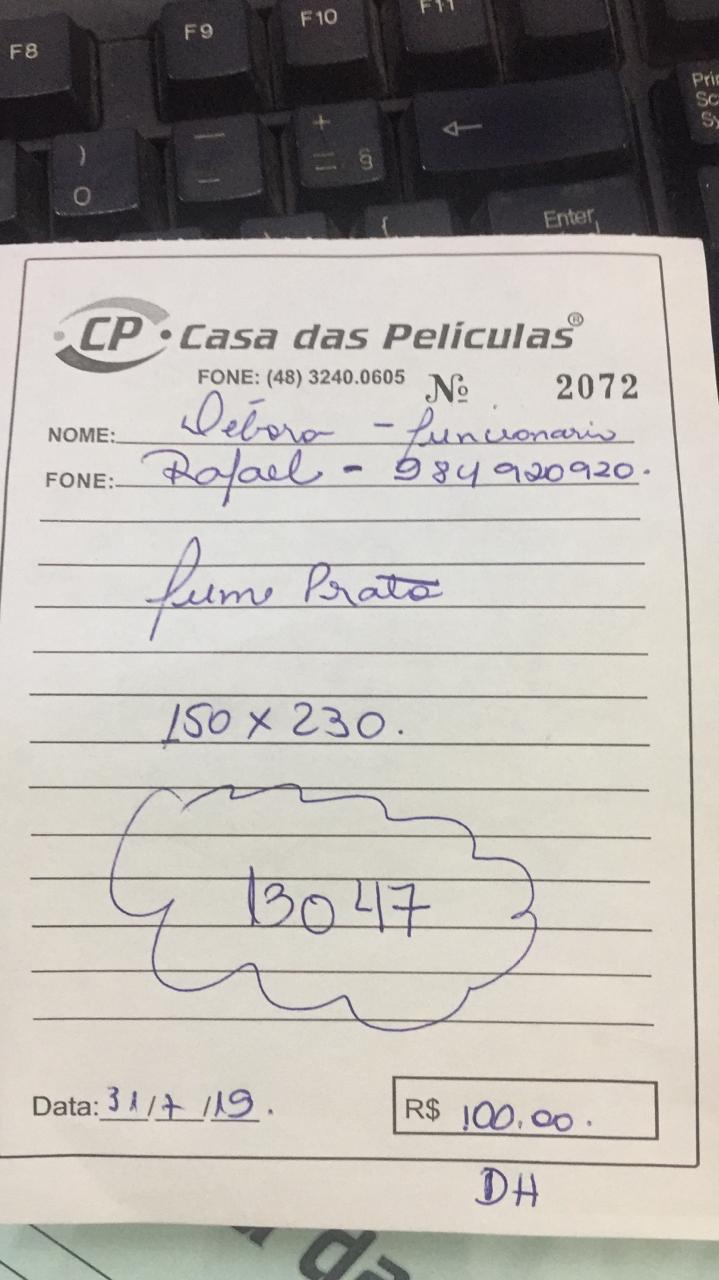 F8 F9 F10 F11
) 0 — – + = § ← Prin Sc Sy
{ Enter
CP Casa das Películas®
FONE: (48) 3240.0605 Nº 2072
NOME: Débora - funcionario
FONE: Rafael - 984920920.
fume Prata
150 x 230.
13047
Data: 31/7/19. R$ 100,00.
DH
da